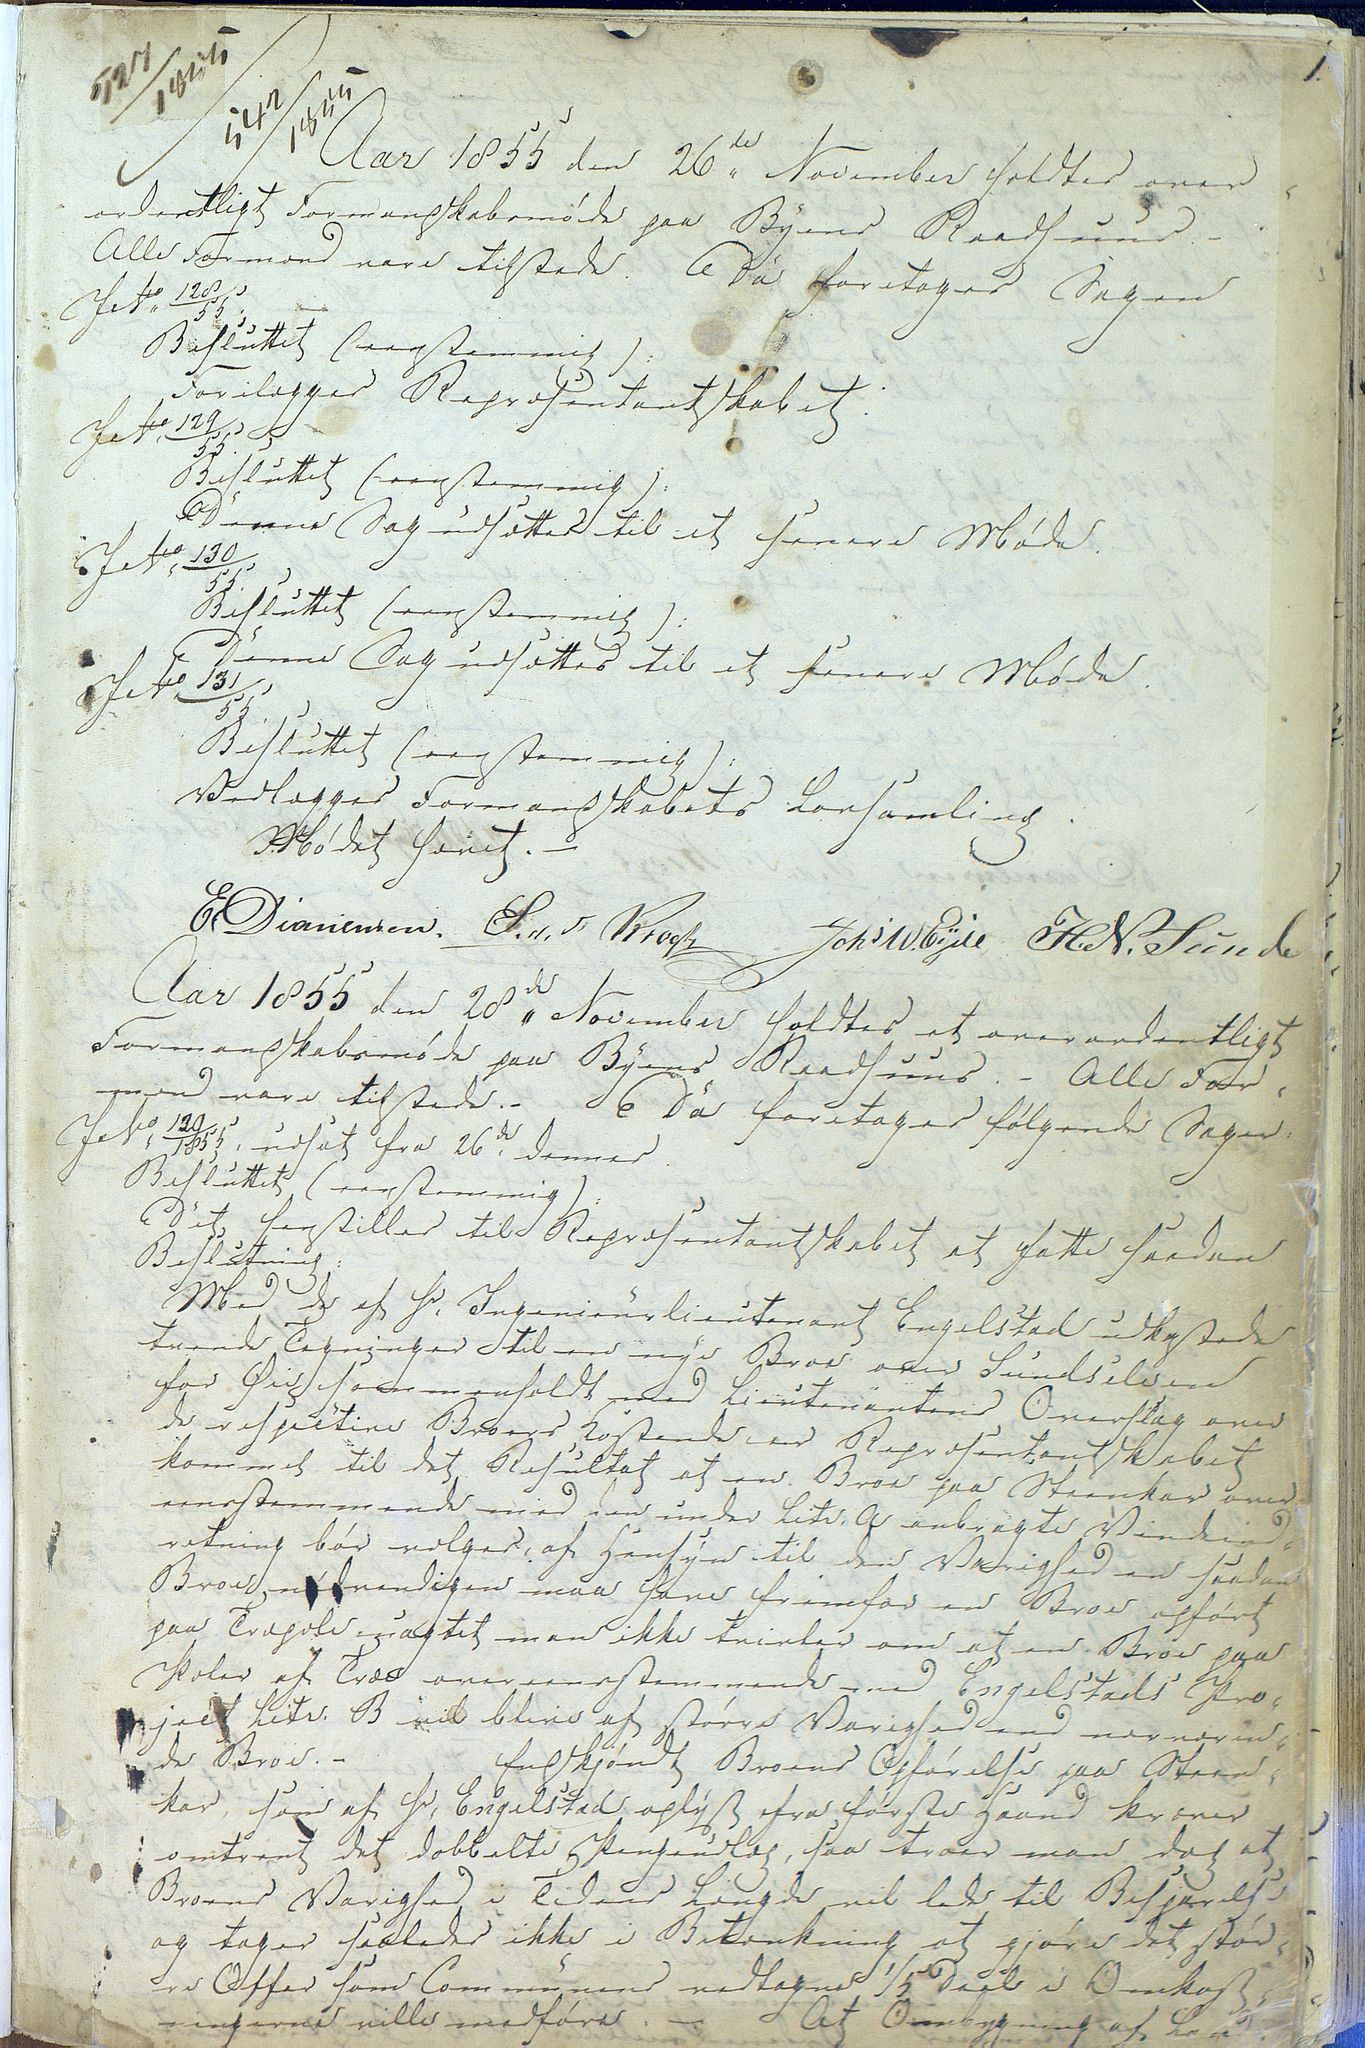 1.
527/1855
542/1855
Aar 1855 den 26de November holdtes over-
ordentligt Formandskabsmøde paa Byens Raadhuus -
Alle Formænd vare tilstede. Da foretages Sagen
J No 128/55.
Besluttet (eenstemmig):
Forelægges Repræsentantskabet.
J No 129/55.
Besluttet (eenstemmig):
Denne Sag udsættes til et senere Møde.
J No 130/55.
Besluttet (eenstemmig):
Denne Sag udsættes til et senere Møde.
J No 131/55.
Besluttet (eenstemmig):
Vedlægges Formandskabets Lovsamling.
Mødet hævet. -
E Danielsen. v Krogh Johs W. Eyde H. N. Sunde
Aar 1855 den 28de November holdtes et overordentligt
Formandskabsmøde paa Byens Raadhuus. - Alle For-
mænd vare tilstede. - Da foretages følgende Sager:
J No 120/1855, udsat fra 26de dennes.
Besluttet (eenstemmig):
Det henstilles til Repræsentantskabet at fatte saadan
Beslutning:
Med de af Hr. Ingenieurlieutenant Engelstad udkastede
tvende Tegninger til en nye Broe over Sundselven
for Øie, sammenholdt med Lieutenantens Overslag over
de respective Broers Kostende er Repræsentantskabet
kommet til det Resultat at en Broe paa Steenkar over-
eenstemmende med den under Litr. A anbragte Vindeind-
retning bør vælges, af Hensyn til den Varighed en saadan
Broe nødvendigen maa have fremfor en Broe opført
paa Træpæle uagtet man ikke tvivler om at en Broe paa
Pæler af Træ overeenstemmende med Engelstads Pro-
ject Litr. B vil blive af større Varighed end nærværen-
de Broe. - Endskjøndt Broens Opførelse paa Steen-
kar, som af Hr. Engelstad oplyst fra første Haand kræver
omtrent det dobbelte Pengeudlæg, saa troer man dog at
Broens Varighed i Tidens Længde vil lede til Besparelse
og tager saaledes ikke i Betænkning at gjøre det stør-
re Offer som Communens vedtagne 1/5 Deel i Omkost-
ningerne ville medføre. - At Ombygning af